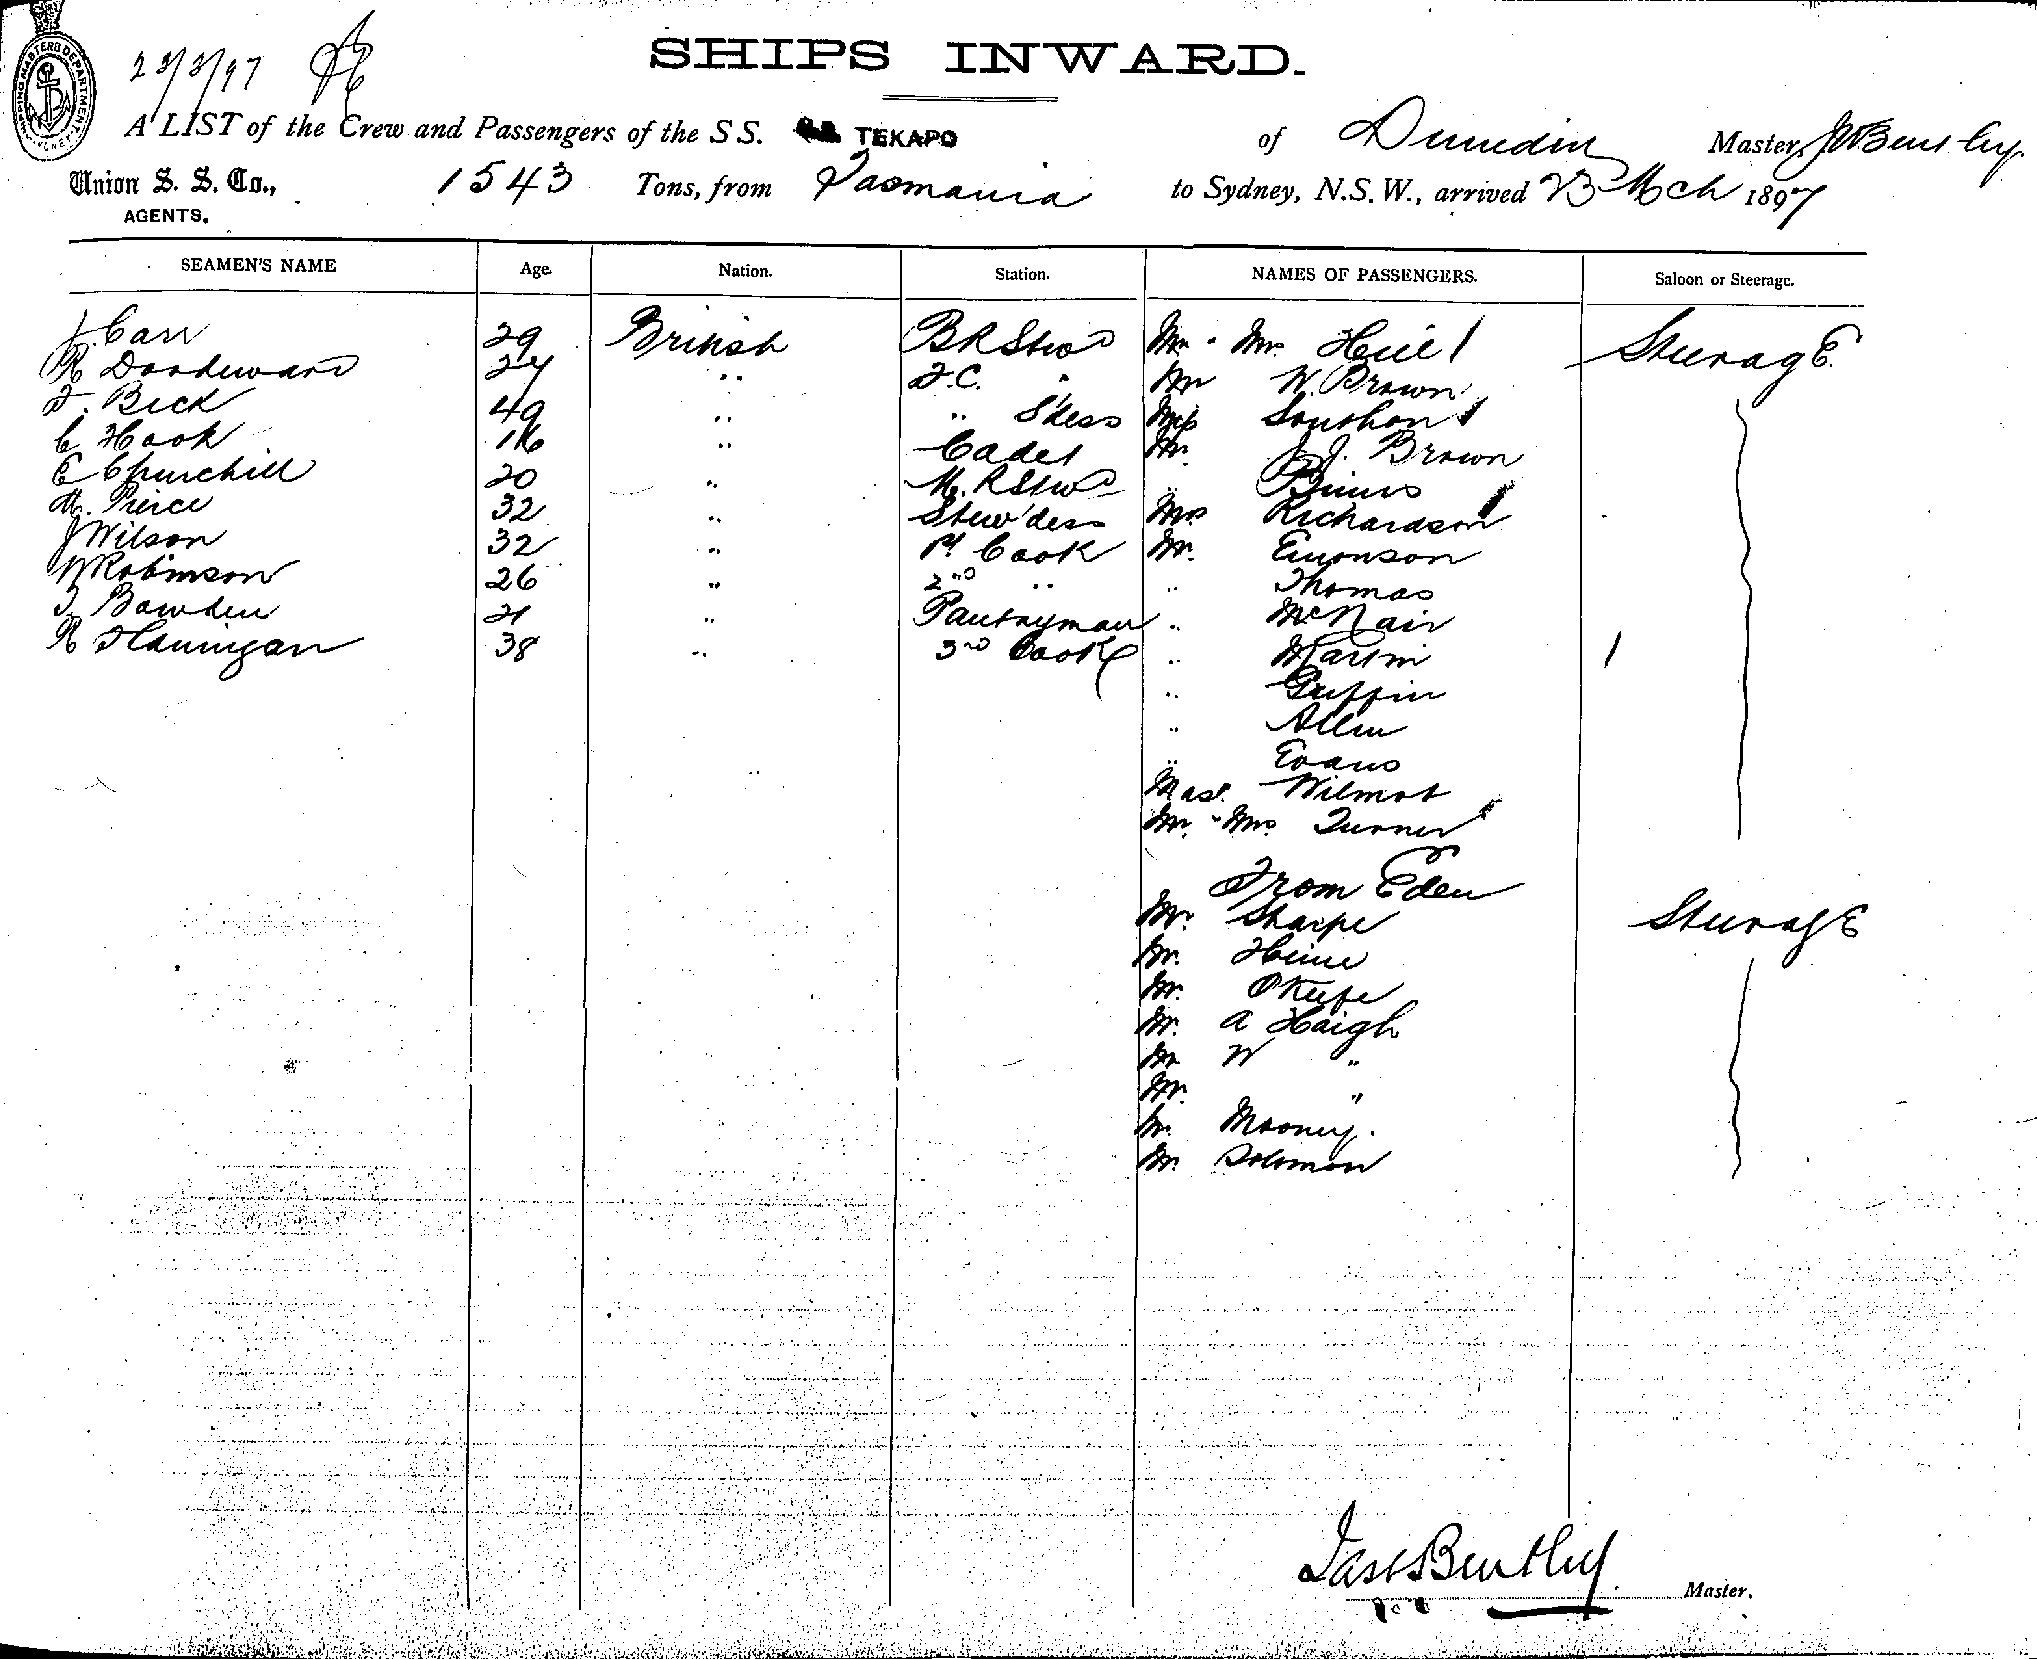 SHIPS INWARD.
23/3/97
A LIST of the Crew and Passengers of the SS. TEKAPO of Dunedin Master, J W Bentley
Union S. S. Co., 1543 Tons, from Tasmania to Sydney, N.S.W., arrived 23 Mch 1897
AGENTS.
SEAMEN'S NAME Age. Nation. Station. NAMES OF PASSENGERS. Saloon or Steerage.
J. Carr 29 British B R Stwd Mr " Mrs Steerage
R 24 " F.C. " Mr W. Brown
F. Beck 49 " " S'dess Southon
C Hook 16 " Cadet Mr. J. Brown
E Churchill 20 " M. R Stwd "
M. Pierce 32 " Stew'dess Mrs Richardson
J Wilson 32 " 1st Cook Mr. Emonson
W Robinson 26 " 2nd " " Thomas
T Bowden 21 " Pantryman " McNair
R Flannigan 38 " 3rd Cook " Martin
" Griffin
" Allen
" Evans
Mast. Wilmot
Mr. " Mrs Turner
From Eden
Mr. Sharpe Steerage
Mr. Heine
Mr. OKeefe
Mr. A Haigh
Mr W "
Mr. "
Mr. Mooney.
Mr. Solomon
Jas W Bentley Master.